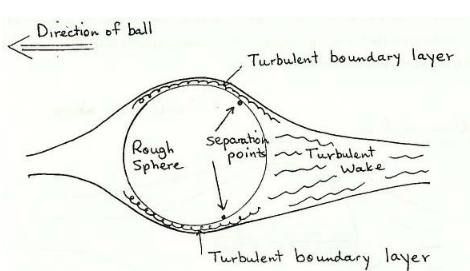 Direction of ball
Turbulent boundary layer
Rough
Sphere
Separation
points
Turbulent
Wake
Turbulent boundary layer